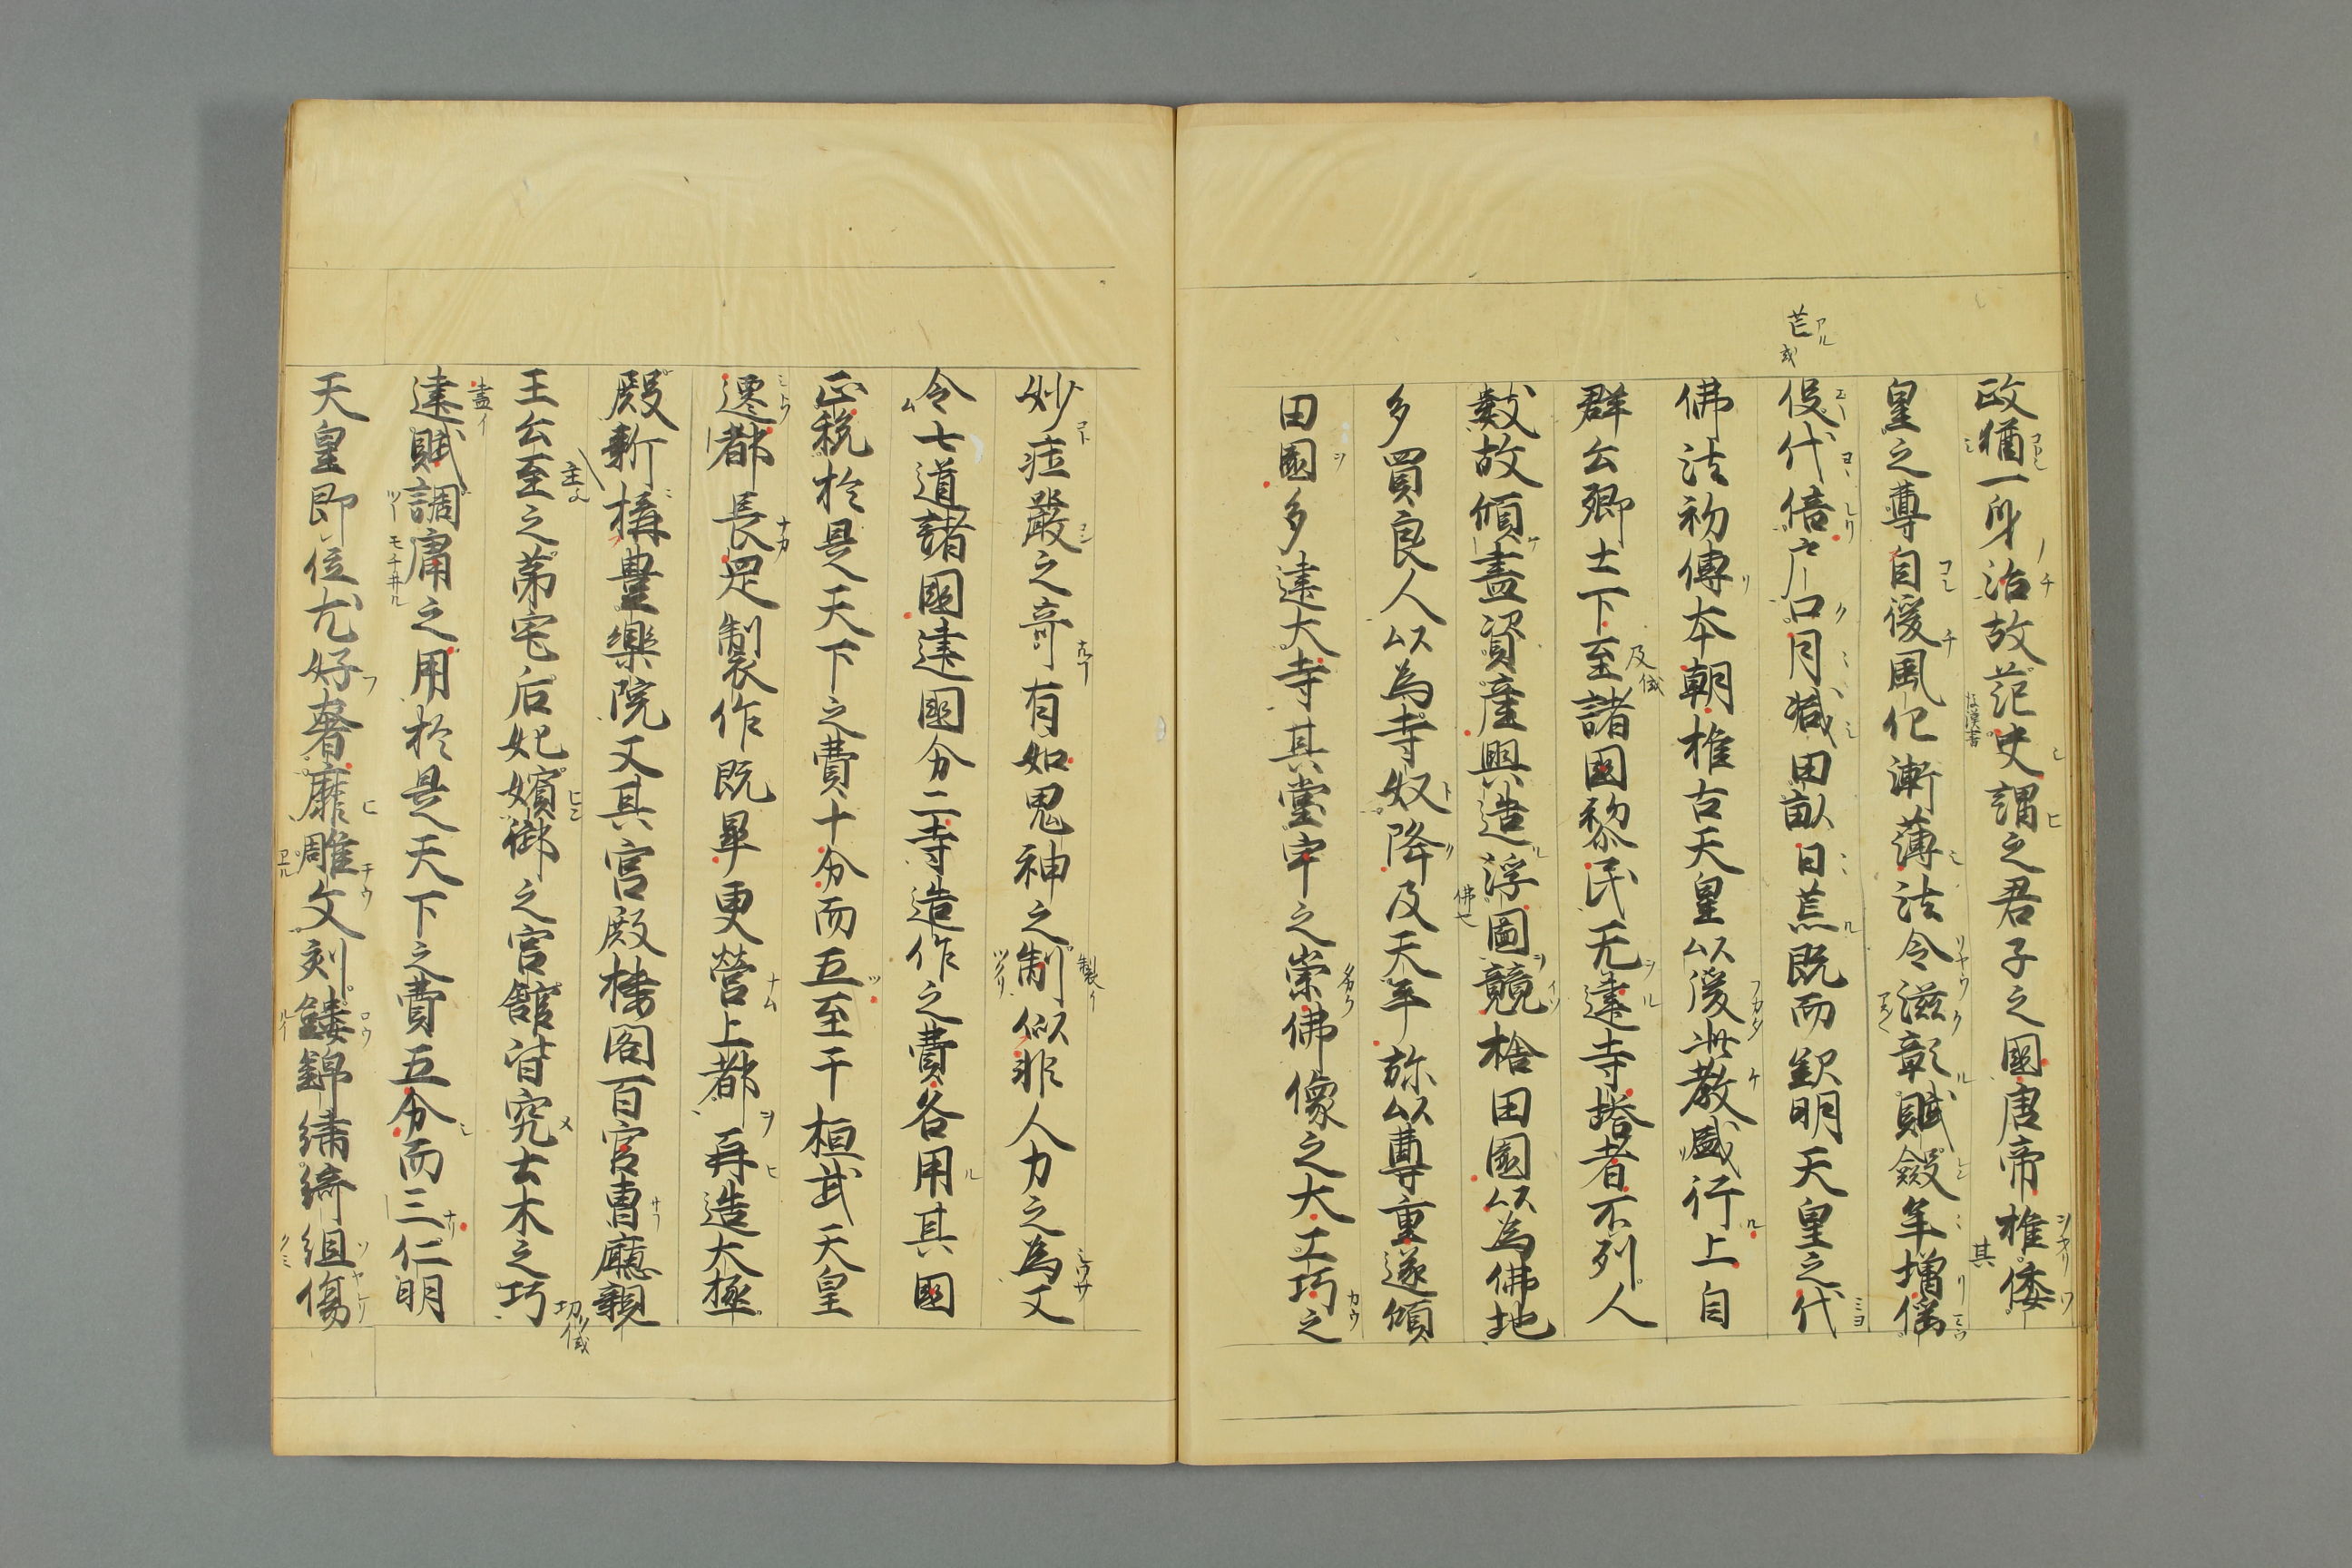 政猶一身治故范史謂之君子之國唐帝推倭
皇之尊自後風化漸薄法令滋彰賦斂年増徭
役代倍戸口月減田畝日荒既而欽明天皇之代
佛法初傳本朝推古天皇以後此教盛行上自
群公卿士下至諸國黎民无建寺塔者不列人
數故傾盡資産興造浮圖競捨田園以為佛地
多買良人以為寺奴降及天平弥以尊重遂傾
田園多建大寺其堂宇之崇佛像之大工巧之
妙荘嚴之奇有如鬼神之制似非人力之為又
令七道諸國建國分二寺造作之費各用其國
正税於是天下之費十分而五至于桓武天皇
遷都長罡製作既畢更營上都再造大極
殿新構豊樂院又其宮殿樓閣百官曹廳親
王公主之第宅后妃嬪御之宮舘皆究土木之巧
盡賦調庸之用於是天下之費五分而三仁明
天皇即位尤好奢靡雕文刻鏤錦繡綺組傷